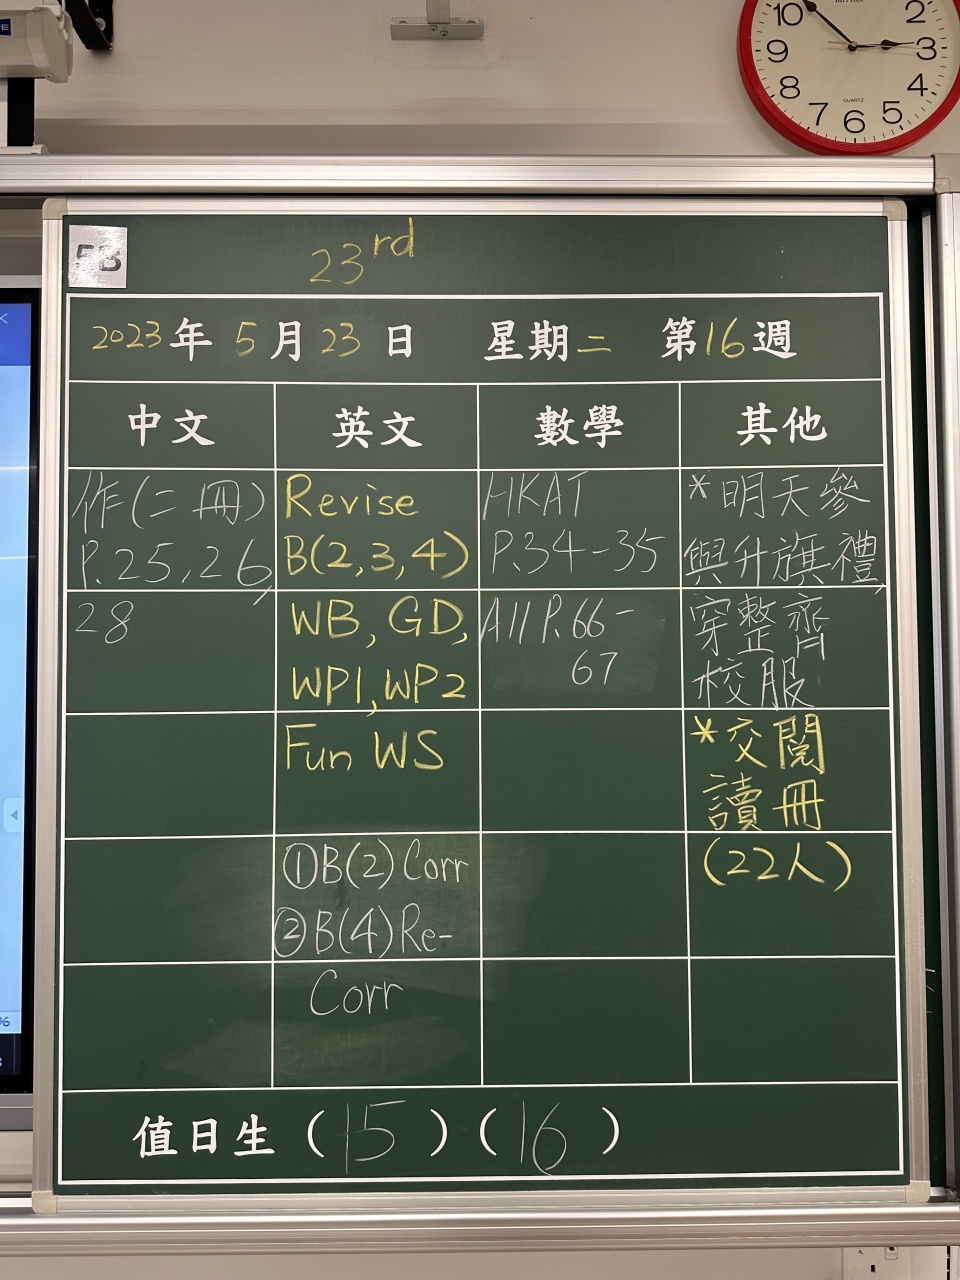 10
2
9
3
8
4
7
6
5
QUARTZ
5B
23rd
2023年 5月 23日 星期二 第16週
中文 英文 數學 其他
作(二冊)
P.25,26,
28
Revise
B(2,3,4)
WB, GD,
WP1, WP2
Fun WS
①B(2) Corr
②B(4) Re-
Corr
HKAT
P.34-35
A11 P.66-
67
*明天參
與升旗禮,
穿整齊
校服
*交閱
讀冊
(22人)
值日生 (15) (16)